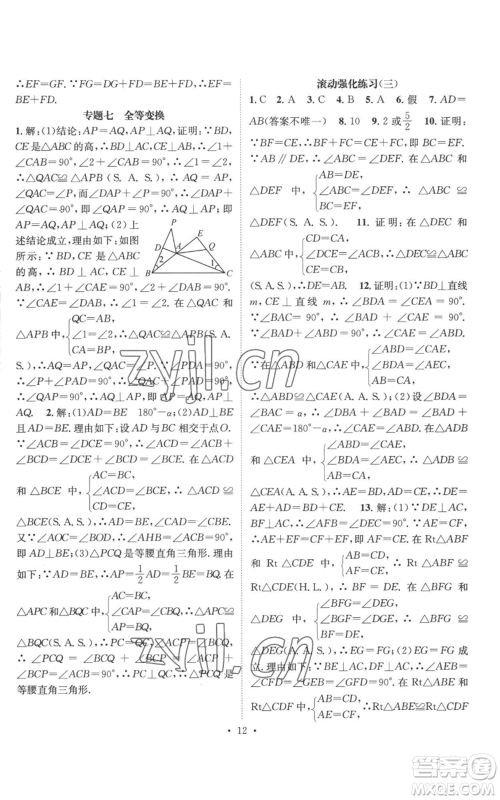 ∴EF=GF. ∵FG=DG+FD=BE+FD,
∴EF=BE+FD.
专题七 全等变换
1.解:(1)结论:AP=AQ,AP⊥AQ.证明:∵BD,
CE是△ABC的高,∴BD⊥AC,CE⊥AB,∴∠1
+∠CAB=90°,∠2+∠CAB=90°,∴∠1=∠2,
∴△QAC≌△APB(S.A.S.),∴AQ=AP,
∠QAC=∠P.∵∠DAP+∠P=90°,∴∠DAP+
∠QAC=90°,即∠QAP=90°,∴AQ⊥AP;即
AP=AQ,AP⊥AQ;(2)
上述结论成立,理由如下:如图
所示:∵BD,CE是△ABC
的高,∴BD⊥AC,CE⊥AB,
∴∠1+∠CAE=90°,∠2+
∠DAB=90°.∵∠CAE=∠DAB,∴∠1=∠2.在△QAC和
△APB中,{QC=AB, ∠1=∠2, CA=BP, ∴△QAC≌△APB(S.A.
S.),∴AQ=AP,∠QAC=∠P.∵∠PDA=90°,
∴∠P+∠PAD=90°,∴∠QAC+∠PAD=90°,
∴∠QAP=90°,∴AQ⊥AP,即AP=AQ,AP⊥
AQ. 2.解:(1)AD=BE 180°-α;(2)AD=BE
且AD⊥BE.理由如下:设BE与AC相交于点O.
∵∠ACB=∠DCE=90°,∴∠ACB+∠ACE=
∠DCE+∠ACE,即∠BCE=∠ACD.在△ACD
和△BCE中,{AC=BC, ∠ACD=∠BCE, CD=CE, ∴△ACD≌
△BCE(S.A.S.),∴AD=BE,∠CAD=∠CBE.
又∵∠AOE=∠BOC,∴∠AEO=∠ACB=90°,
即AD⊥BE;(3)△PCQ是等腰直角三角形.理由
如下:∵AD=BE,AP=1/2AD,BQ=1/2BE,∴AP=BQ.在
△APC和△BQC中,{AC=BC, ∠CAP=∠CBQ, AP=BQ, ∴△APC≌
△BQC(S.A.S.),∴PC=QC,∠ACP=∠BCQ,
∴∠PCQ=∠BCQ+∠BCP=∠ACP+
∠BCP=∠ACB=90°,∴△PCQ是
等腰直角三角形.
滚动强化练习(三)
1.C 2.A 3.C 4.B 5.A 6.假 7.AD=
AB(答案不唯一) 8.10 9.2或5/2 10.证明:
∵BF=CE,∴BF+CF=CE+CF,即BC=EF.
∵AB∥DE,∴∠B=∠E.在△ABC和
△DEF中,{AB=DE, ∠B=∠E, BC=EF, ∴△ABC≌△DEF
(S.A.S.),∴∠ACB=∠DFE. 11.证明:在
△DEC和△ABC中,{CD=CA, ∠DCE=∠ACB, CE=CB, ∴△DEC≌△ABC
(S.A.S.),∴DE=AB. 12.证明:(1)∵BD⊥直线
m,CE⊥直线m,∴∠BDA=∠CEA=90°.
∵∠BAC=90°,∴∠BAD+∠CAE=90°.
∵∠BAD+∠ABD=90°,∴∠ABD=∠CAE.
∵在△ABD和△CAE中,{∠ABD=∠CAE, ∠BDA=∠AEC, AB=CA,
∴△ABD≌△CAE(A.A.S.);(2)设∠BDA=
∠BAC=α,∴∠DBA+∠BAD=∠BAD+
∠CAE=180°-α,∴∠DBA=∠CAE.在△BDA
和△CEA中,{∠ABD=∠CAE, ∠BDA=∠CEA, AB=AC, ∴△ADB≌
△CEA(A.A.S.),∴AE=BD,AD=CE,∴DE=
AE+AD=BD+CE. 13.证明:(1)∵AE=CF,
∴AE+EF=CF+EF,即AF=CE.在Rt△ABF和
Rt△CDE中,{AB=CD, AF=CE, ∴Rt△ABF≌
Rt△CDE(H.L.),∴BF=DE.在△BFG和
△DEG中,{∠BFG=∠DEG, ∠BGF=∠DGE, BF=DE, ∴△BFG≌
△DEG(A.A.S.),∴EG=FG;(2)(1)中结论依然成
立.理由如下:∵∠AFB=∠CED=90°,
∴∠GED=∠GFB=90°.在Rt△ABE和Rt△CDF
中,{AB=CD, AE=CF, ∴Rt△ABE≌Rt△CDF
· 12 ·
zyjl.cn
zyjl.cn